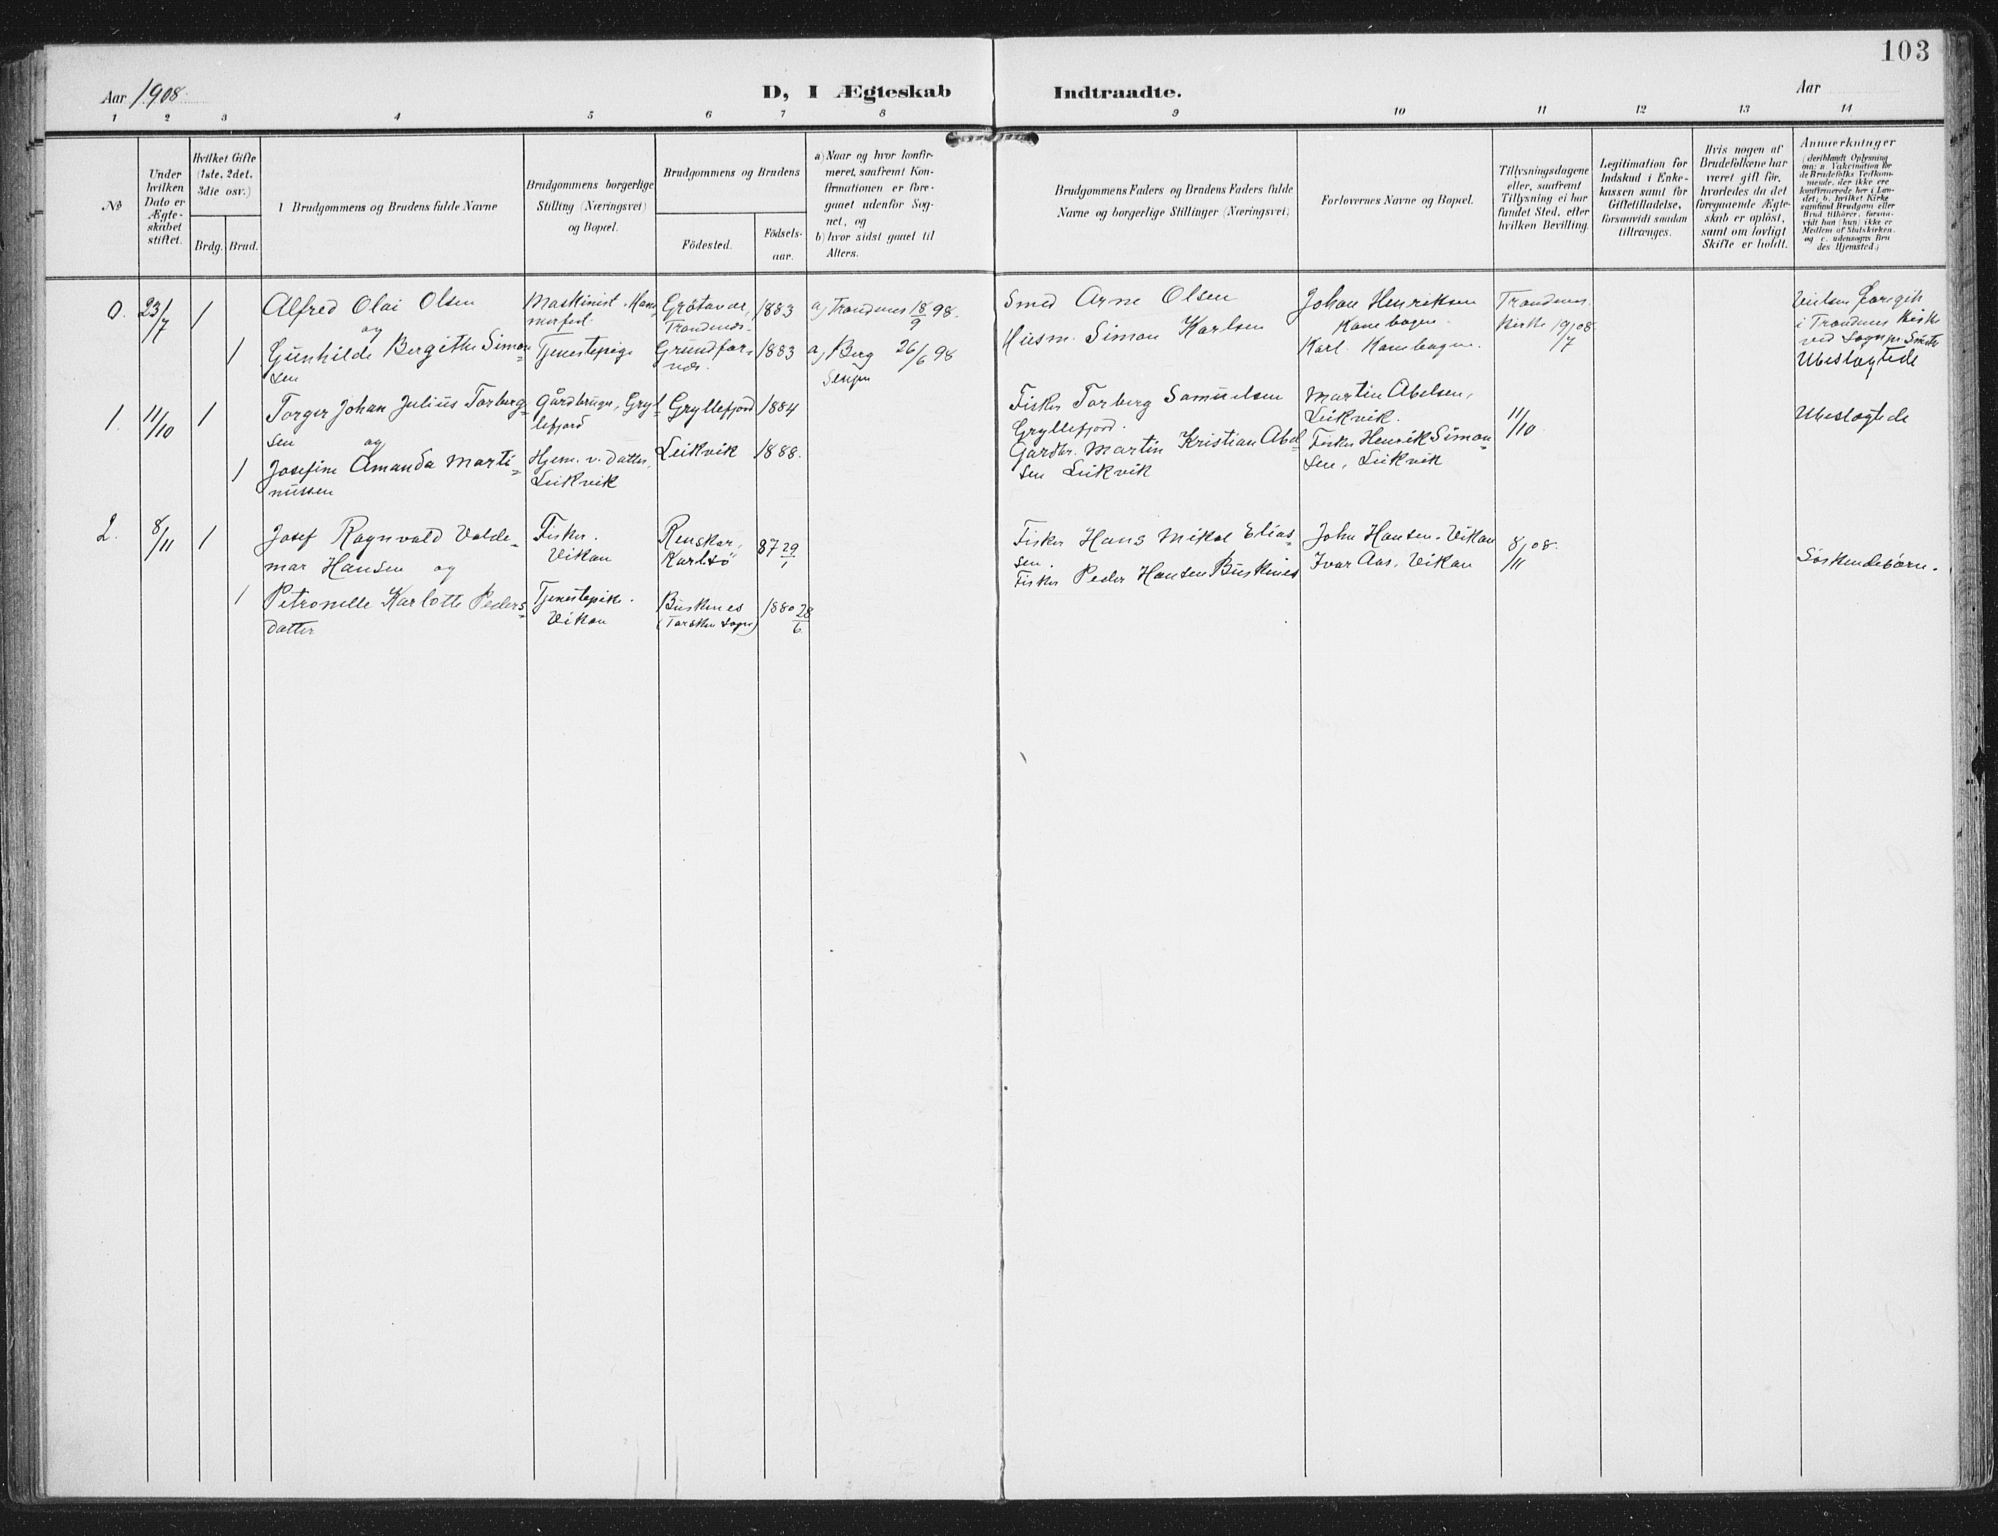 103
Aar 1908.
D, I Ægteskab Indtraadte.
Aar
1 2 3 4 5 6 7 8 9 10 11 12 13 14
No
Under hvilken Dato er Ægteskabet stiftet.
Hvilket Gifte (1ste, 2det, 3die osv.)
Brdg. Brud.
1 Brudgommens og Brudens fulde Navne
Brudgommens borgerlige Stilling (Næringsvei) og Bopæl.
Brudgommens og Brudens
Fødested.
Fødselsaar.
a) Naar og hvor konfirmeret, saafremt Konfirmationen er foregaaet udenfor Sognet, og
b) hvor sidst gaaet til Alters.
Brudgommens Faders og Brudens Faders fulde Navne og borgerlige Stillinger (Næringsvei)
Forlovernes Navne og Bopæl.
Tillysningsdagene eller, saafremt Tillysning ei har fundet Sted, efter hvilken Bevilling.
Legitimation for Indskud i Enkekassen samt for Giftetilladelse, forsaavidt saadan tiltrænges.
Hvis nogen af Brudefolkene har været gift før, hvorledes da det foregaaende Ægteskab er opløst, samt om lovligt Skifte er holdt.
Anmerkninger
(deriblandt Oplysning om: a. Vakcination for de Brudefolks Vedkommende, der ikke ere konfirmerede her i Landet; b. hvilket Kirkesamfund Brudgom eller Brud tilhører, forsaavidt han (hun) ikke er Medlem af Statskirken, og c. udensogns Brudes Hjemsted.)
0. 23/7 1
Alfred Olai Olsen
og
1 Gunhilde Bergitte Simonsen
Maskinist, Hammerfest.
Tjenestepige
Grötavær, Trondenæs. 1883
Grundfarnæs. 1883
a) Trondenes 18/9 98.
a) Berg 26/6 98
Senjen
Smed Arne Olsen
Husm. Simon Karlsen
Johan Henriksen
Kanebogen.
Karl. Kanebogen.
Trondenes
Kirke 19/7 08.
i Trondenes Kirke
ved Sognepr.
Ubeslægtede
1. 11/10 1
Torger Johan Julius Torbergsen og
1 Josefine Amanda Martinussen
Gårdbruger, Gryllefjord
Hjem. v. Datter, Leikvik
Gryllefjord 1884
Leikvik 1888.
Fisker Torberg Samuelsen
Gryllefjord.
Gårdbr. Martin Kristian Abelsen Leikvik
Martin Abelsen,
Leikvik.
Fisker Henrik Simonsen, Leikvik
11/10.
Ubeslægtede
2. 8/11 1
Josef Ragnvald Valdemar Hansen og
1 Petronelle Karlotte Pedersdatter
Fisker.
Vikan
Tjenestepike.
Vikan
Renskar,
Karlsö 87 29/1
Buskenes
(Torsken Sogn) 1880 28/6
Fisker Hans Mikal Eliassen.
Fisker Peder Hansen Buskenes
John Hansen. Vikan
Ivar Aas. Vikan
8/11 08.
Søskendebørn.